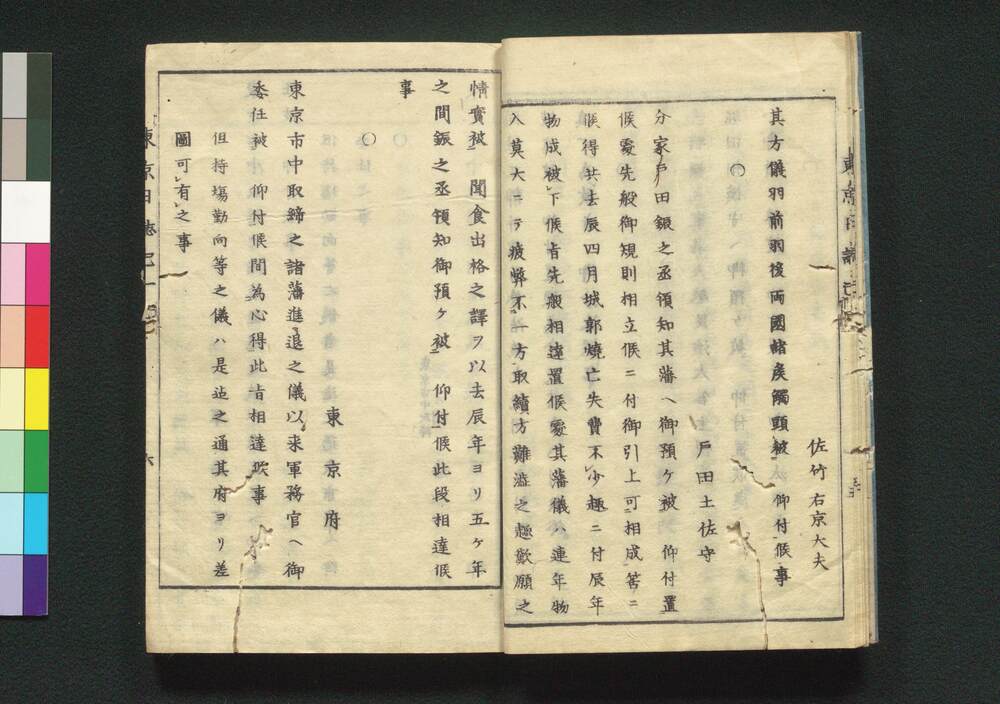 佐竹右京大夫
其方儀羽前羽後両國諸矦觸頭被　仰付候事
○
戸田土佐守
分家戸田鋠之丞領知其藩ヘ御預ケ被　仰付置
候處先般御規則相立候ニ付御引上可相成筈ニ
候得共去辰四月城郭焼亡失費不少趣ニ付辰年
物成被下候旨先般相達置候處其藩儀ハ連年物
入莫大ニテ疲弊不一方取續方難澁之趣歎願之
情實被　聞食出格之譯ヲ以去辰年ヨリ五ケ年
之間鋠之丞領知御預ケ被　仰付候此段相達候
事
○
東京府
東京市中取締之諸藩進退之儀以来軍務官ヘ御
委任被　仰付候間為心得此旨相達候事
但持場勤向等之儀ハ是迄之通其府ヨリ差
圖可有之事
東京日誌
六